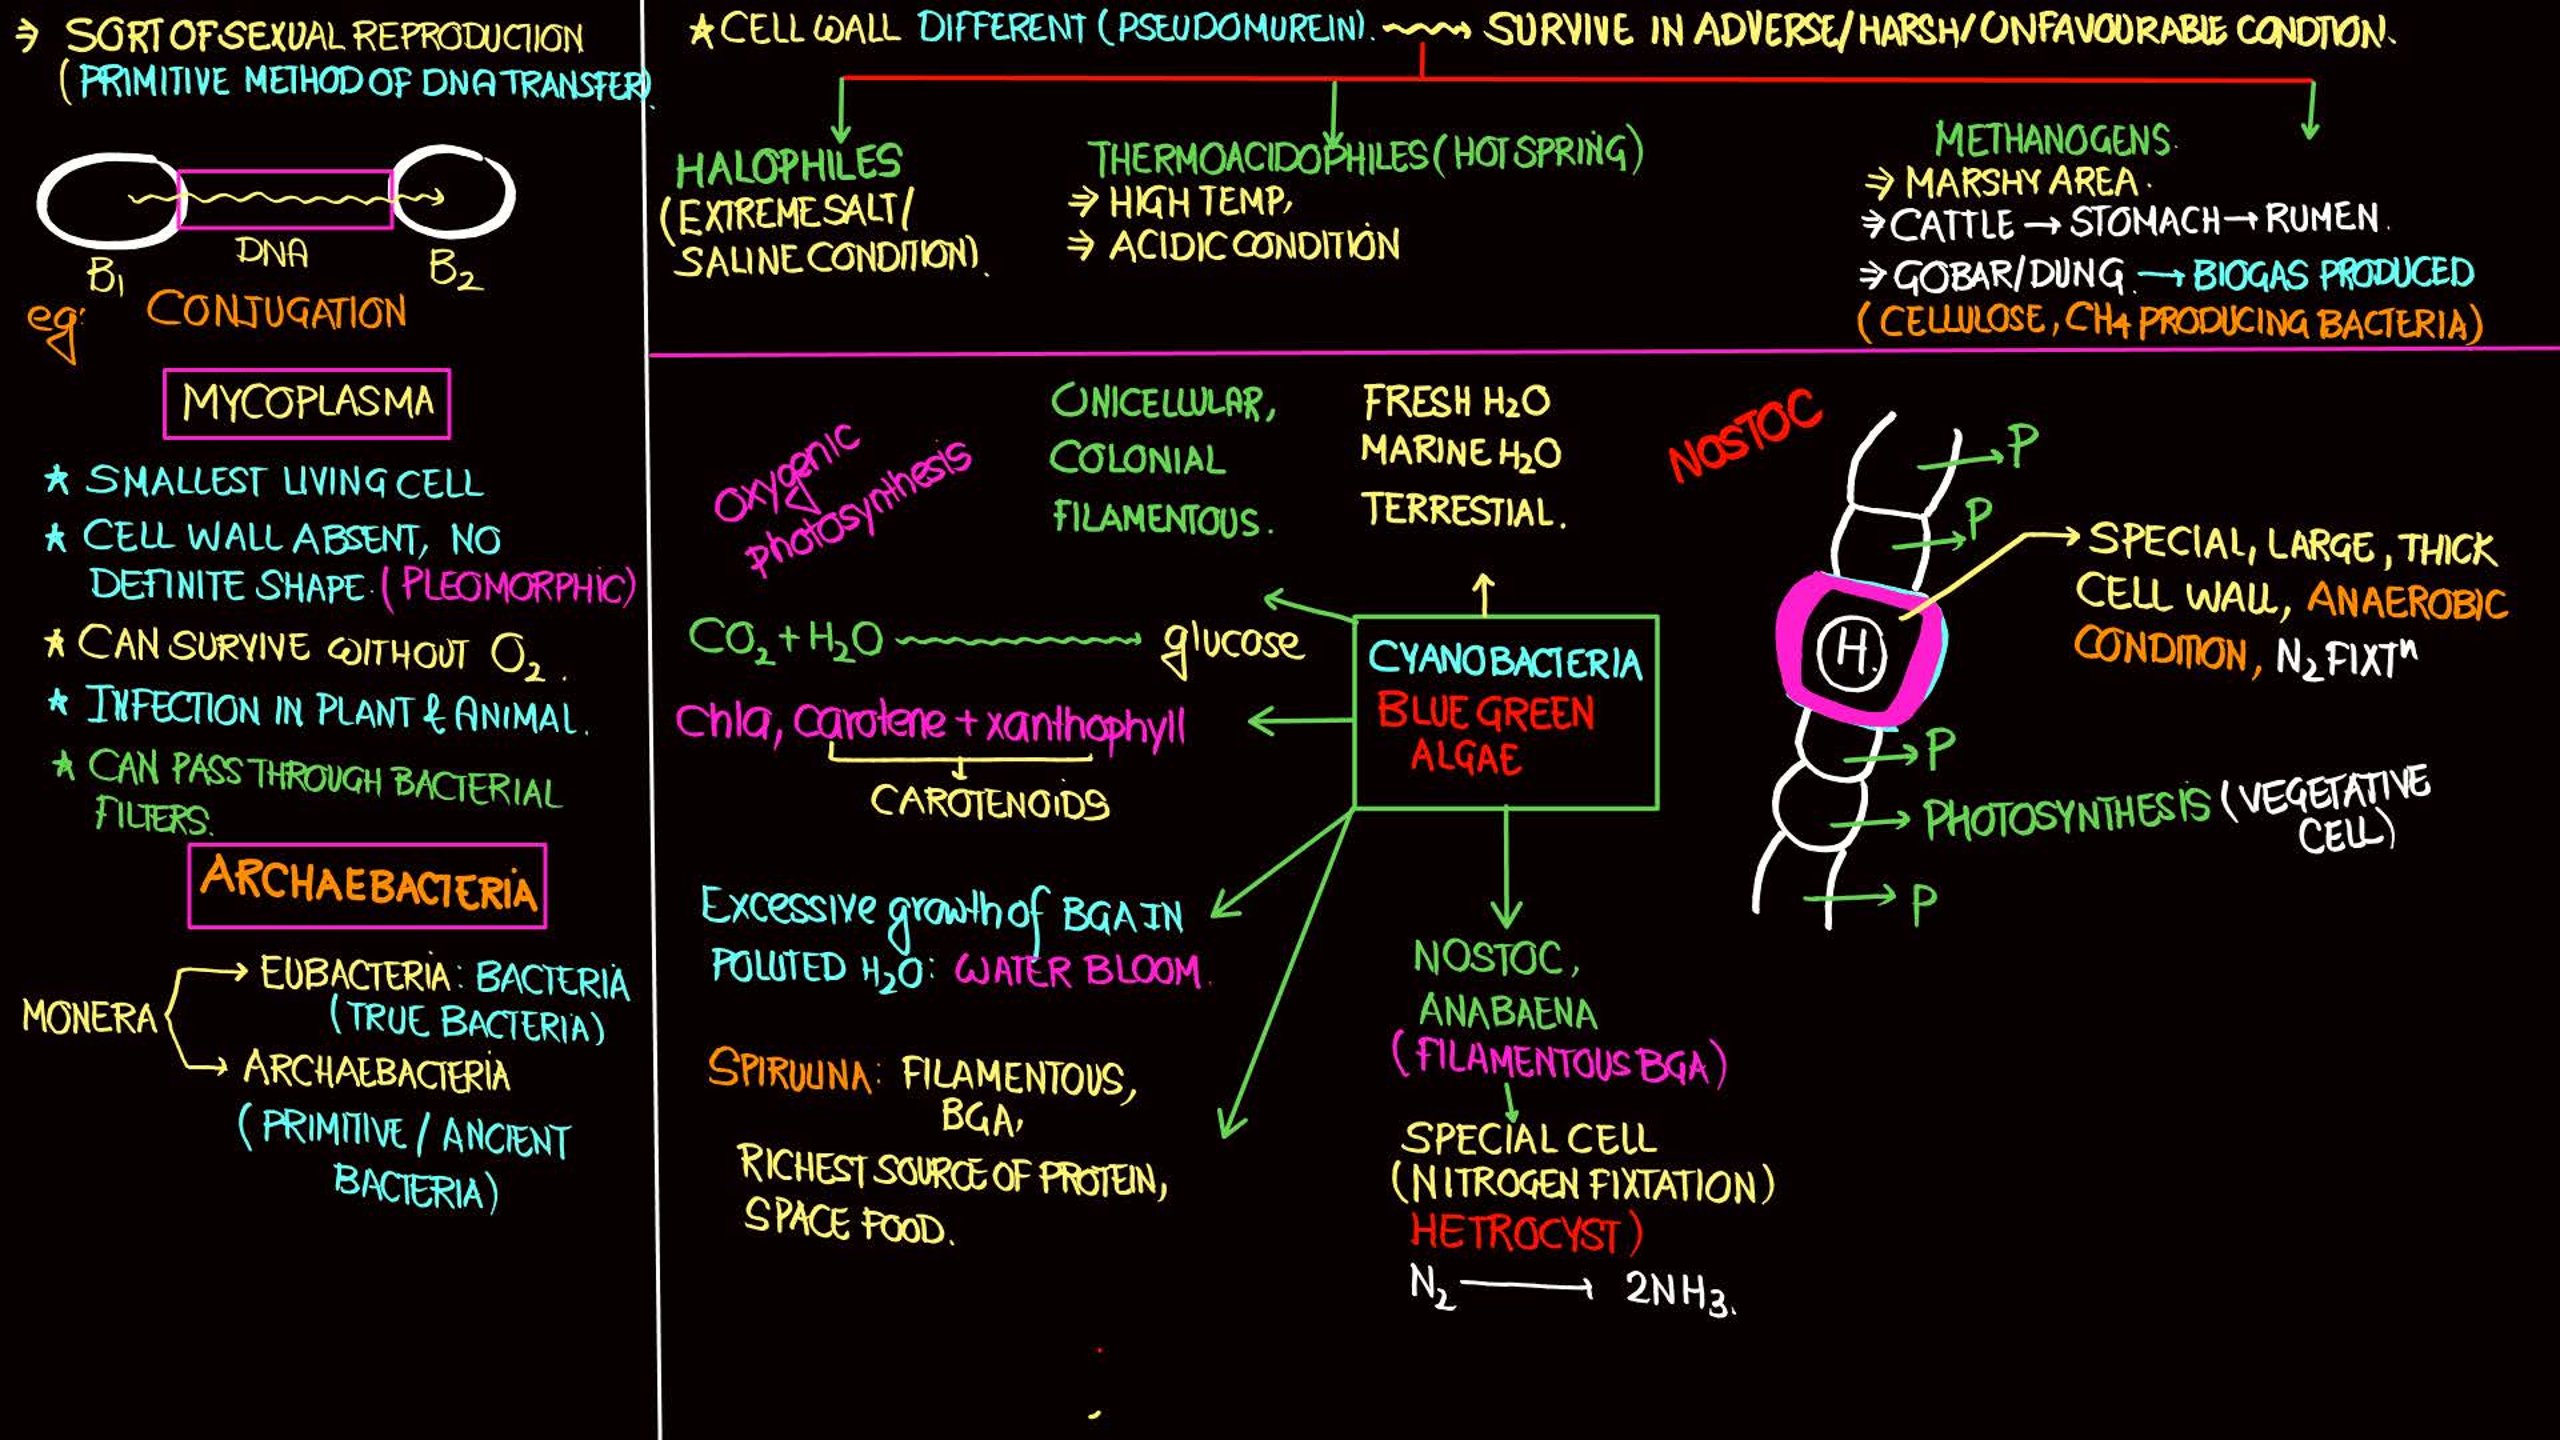 ⇒ SORT OF SEXUAL REPRODUCTION
(PRIMITIVE METHOD OF DNA TRANSFER).
DNA
B1
B2
eg: CONJUGATION
MYCOPLASMA
★ SMALLEST LIVING CELL
★ CELL WALL ABSENT, NO
DEFINITE SHAPE. (PLEOMORPHIC)
★ CAN SURVIVE WITHOUT O2.
★ INFECTION IN PLANT & ANIMAL.
★ CAN PASS THROUGH BACTERIAL
FILTERS.
ARCHAEBACTERIA
MONERA
→ EUBACTERIA: BACTERIA
(TRUE BACTERIA)
→ ARCHAEBACTERIA
(PRIMITIVE / ANCIENT
BACTERIA)
★ CELL WALL DIFFERENT (PSEUDOMUREIN). → SURVIVE IN ADVERSE/HARSH/UNFAVOURABLE CONDTION.
HALOPHILES
(EXTREME SALT/
SALINE CONDITION).
THERMOACIDOPHILES (HOT SPRING)
⇒ HIGH TEMP,
⇒ ACIDIC CONDITION
METHANOGENS.
⇒ MARSHY AREA.
⇒ CATTLE → STOMACH → RUMEN.
⇒ GOBAR/DUNG. → BIOGAS PRODUCED
(CELLULOSE, CH4 PRODUCING BACTERIA)
Oxygenic
photosynthesis
UNICELLULAR,
COLONIAL
FILAMENTOUS.
FRESH H2O
MARINE H2O
TERRESTIAL.
CO2 + H2O → glucose
Chla, carotene + xanthophyll
CAROTENOIDS
CYANOBACTERIA
BLUE GREEN
ALGAE
Excessive growth of BGA IN
POLUTED H2O: WATER BLOOM.
SPIRULINA: FILAMENTOUS,
BGA,
RICHEST SOURCE OF PROTEIN,
SPACE FOOD.
NOSTOC,
ANABAENA
(FILAMENTOUS BGA)
SPECIAL CELL
(NITROGEN FIXTATION)
HETROCYST)
N2 → 2NH3.
NOSTOC
P
P
SPECIAL, LARGE, THICK
CELL WALL, ANAEROBIC
CONDITION, N2 FIXTn
H.
P
PHOTOSYNTHESIS (VEGETATIVE
CELL)
P